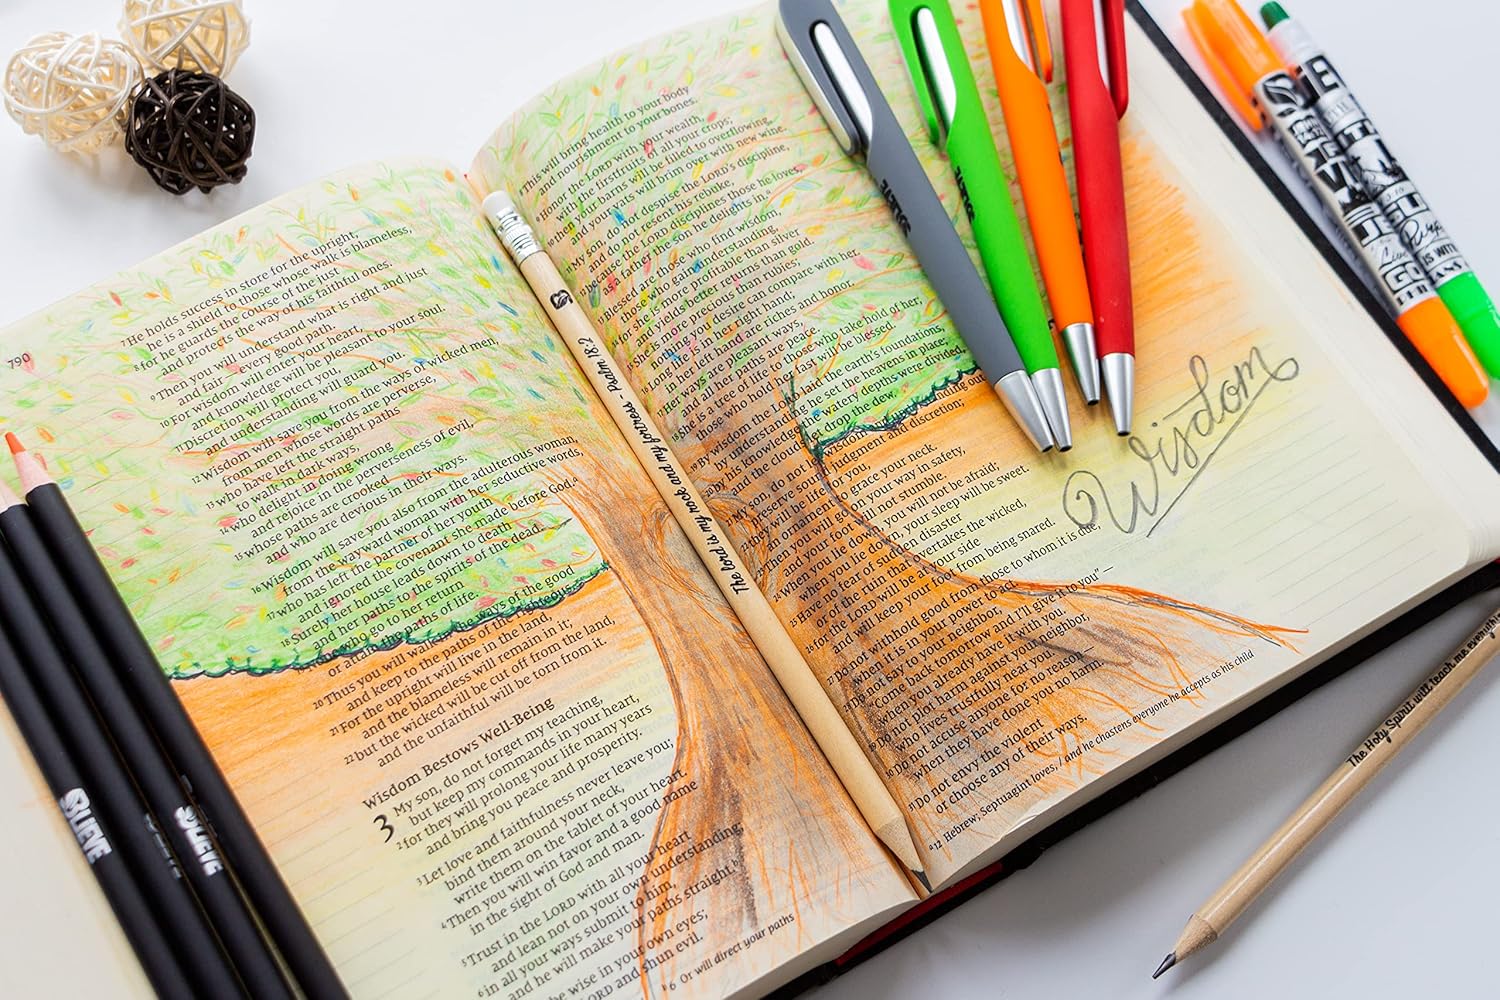 790
7He holds success in store for the upright,
he is a shield to those whose walk is blameless,
8for he guards the course of the just
and protects the way of his faithful ones.
9Then you will understand what is right and just
and fair—every good path.
10For wisdom will enter your heart,
and knowledge will be pleasant to your soul.
11Discretion will protect you,
and understanding will guard you.
12Wisdom will save you from the ways of wicked men,
from men whose words are perverse,
13who have left the straight paths
to walk in dark ways,
14who delight in doing wrong
and rejoice in the perverseness of evil,
15whose paths are crooked
and who are devious in their ways.
16Wisdom will save you also from the adulterous woman,
from the wayward woman with her seductive words,
17who has left the partner of her youth
and ignored the covenant she made before God.a
18Surely her house leads down to death
and her paths to the spirits of the dead.
who go to her return
or attain the paths of life.
the ways of the good
and keep to the paths of the righteous
21For the upright will live in the land,
and the blameless will remain in it;
22but the wicked will be cut off from the land,
and the unfaithful will be torn from it.
Wisdom Bestows Well-Being
3 My son, do not forget my teaching,
but keep my commands in your heart,
2for they will prolong your life many years
and bring you peace and prosperity.
3Let love and faithfulness never leave you;
bind them around your neck,
write them on the tablet of your heart.
4Then you will win favor and a good name
in the sight of God and man.
5Trust in the LORD with all your heart
and lean not on your own understanding;
6in all your ways submit to him,
and he will make your paths straight.b
be wise in your own eyes;
LORD and shun evil.
6 Or will direct your paths
8This will bring health to your body
and nourishment to your bones.
9Honor the LORD with your wealth,
with the firstfruits of all your crops;
10then your barns will be filled to overflowing,
and your vats will brim over with new wine.
11My son, do not despise the LORD's discipline,
and do not resent his rebuke,
12because the LORD disciplines those he loves,
as a father the son he delights in.
13Blessed are those who find wisdom,
those who gain understanding,
14for she is more profitable than silver
and yields better returns than gold.
15She is more precious than rubies;
nothing you desire can compare with her.
16Long life is in her right hand;
in her left hand are riches and honor.
17Her ways are pleasant ways,
and all her paths are peace.
18She is a tree of life to those who take hold of her;
those who hold her fast will be blessed.
19By wisdom the LORD laid the earth's foundations,
by understanding he set the heavens in place;
20by his knowledge the watery depths were divided,
and the clouds let drop the dew.
21My son, do not let wisdom
judgment and discretion;
for you,
an ornament to grace your neck.
23Then you will go on your way in safety,
and your foot will not stumble.
24When you lie down, you will not be afraid;
when you lie down, your sleep will be sweet.
25Have no fear of sudden disaster
or of the ruin that overtakes the wicked,
26for the LORD will be at your side
and will keep your foot from being snared.
27Do not withhold good from those to whom it is due,
when it is in your power to act.
28Do not say to your neighbor,
"Come back tomorrow and I'll give it to you"—
when you already have it with you.
29Do not plot harm against your neighbor,
who lives trustfully near you.
30Do not accuse anyone for no reason—
when they have done you no harm.
31Do not envy the violent
or choose any of their ways.
12 Hebrew; Septuagint loves, / and he chastens everyone he accepts as his child
Wisdom
The lord is my rock and my fortress - Psalm 18:2
The Holy Spirit will teach me everything
SLIEVE
SLIEVE